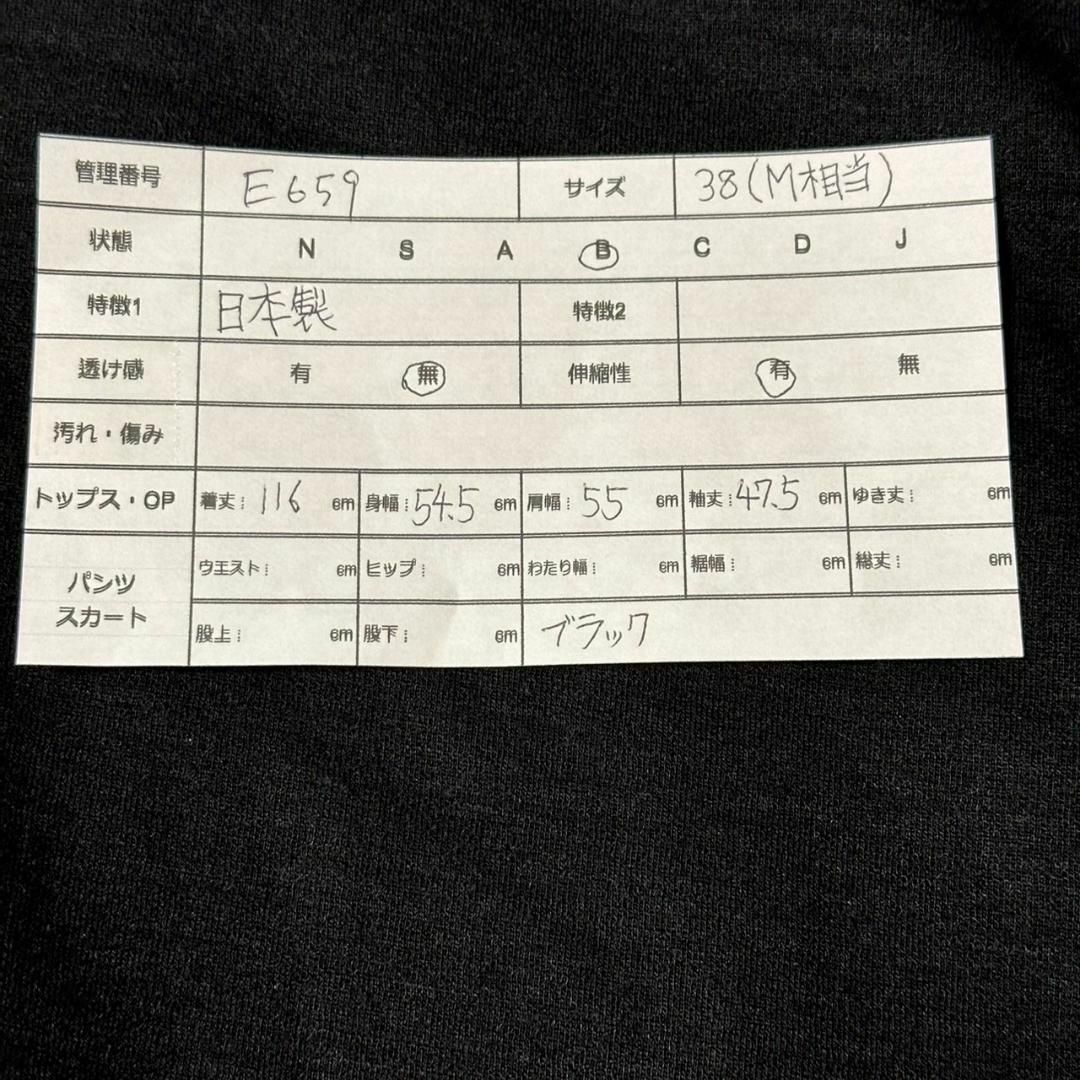 管理番号 E659 サイズ 38(M相当)
状態 N S A B C D J
特徴1 日本製 特徴2
透け感 有 無 伸縮性 有 無
汚れ・傷み
トップス・OP 着丈: 116 cm 身幅: 54.5 cm 肩幅: 55 cm 袖丈: 47.5 cm ゆき丈: cm
パンツ スカート ウエスト: cm ヒップ: cm わたり幅: cm 裾幅: cm 総丈: cm
股上: cm 股下: cm ブラック